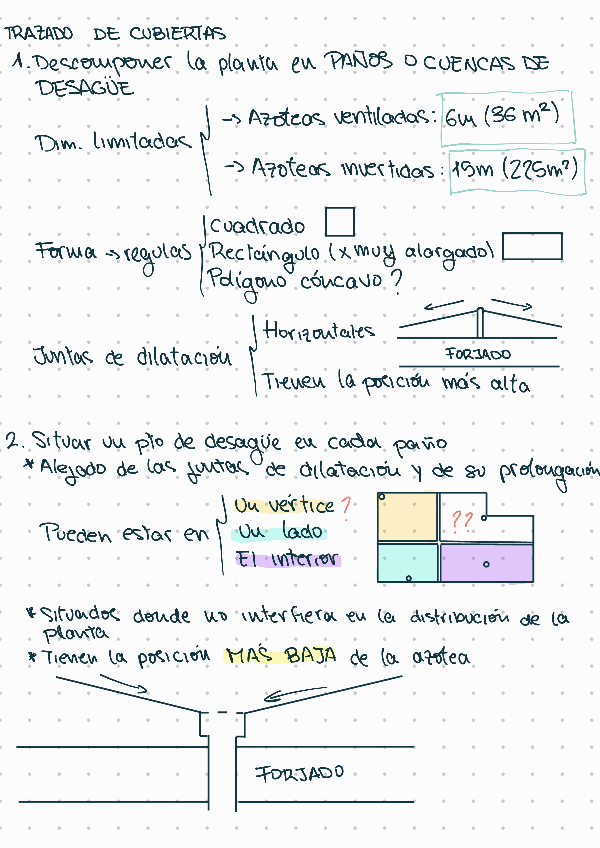 TRAZADO DE CUBIERTAS
1. Descomponer la planta en PAÑOS O CUENCAS DE
DESAGÜE
Dim. limitadas
→ Azoteas ventiladas: 6m (36 m²)
→ Azoteas invertidas: 15m (225m²)
Forma → regulas
Cuadrado
Rectángulo (x muy alargado)
Polígono cóncavo ?
Juntas de dilatación
Horizontales
FORJADO
Tienen la posición más alta
2. Situar un pto de desagüe en cada paño
* Alejado de las juntas de dilatación y de su prolongación
Pueden estar en
Un vértice ?
Un lado
El interior
??
* Situados donde no interfiera en la distribución de la
planta
* Tienen la posición MÁS BAJA de la azotea
FORJADO